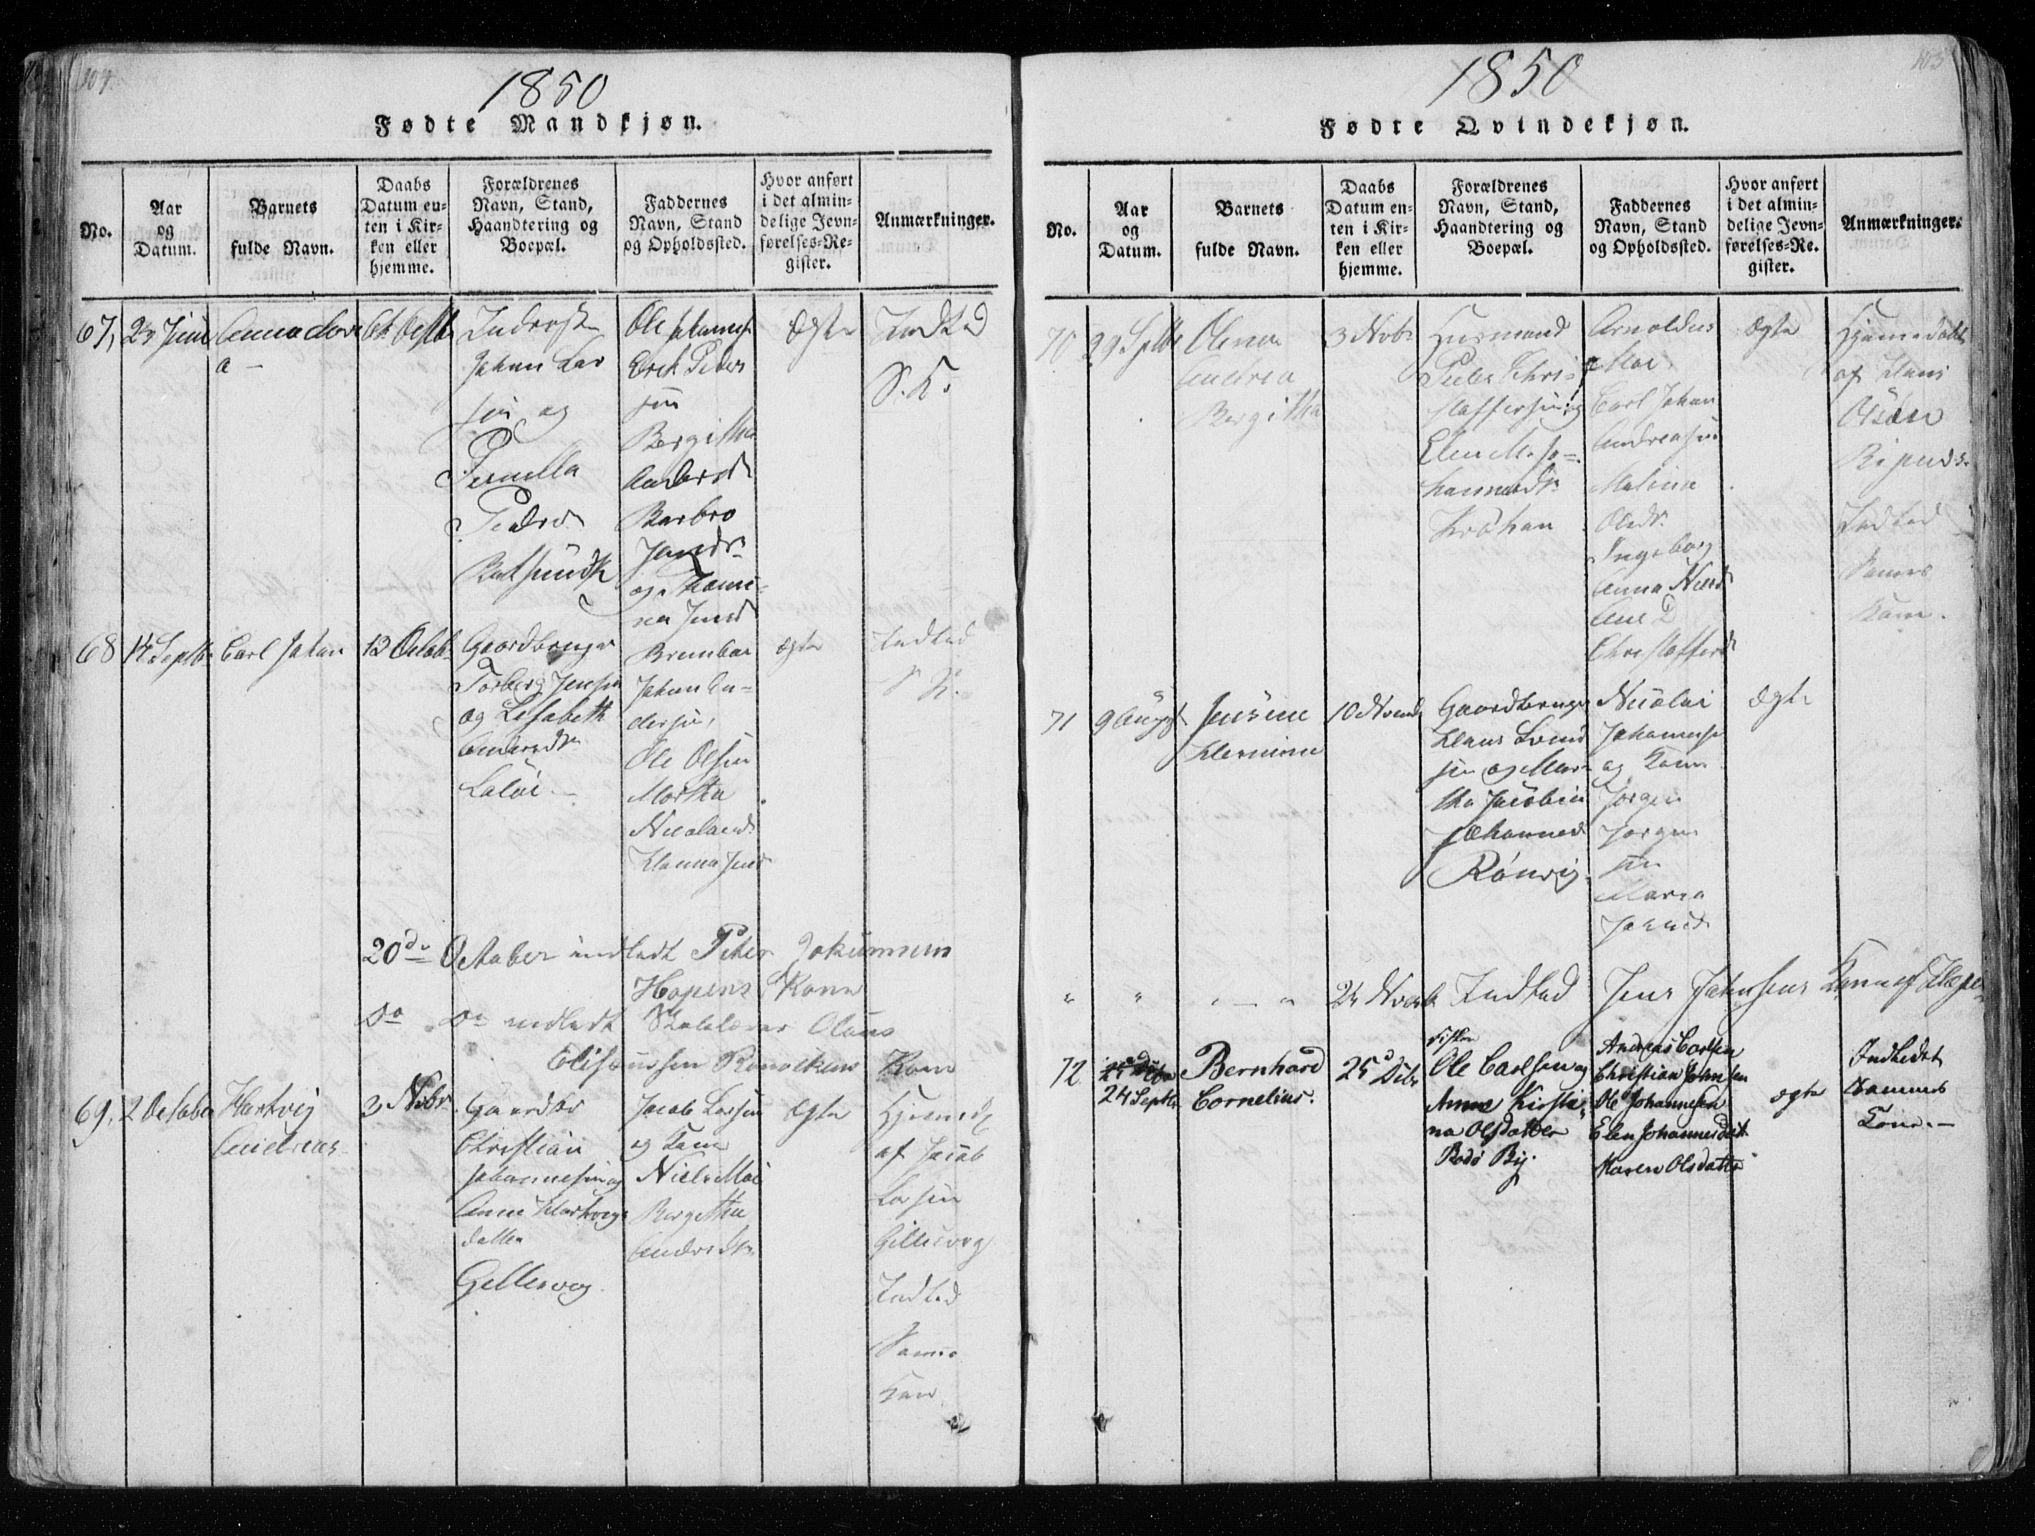 104.
1850
Fødte Mandkjøn.
No.
Aar
og
Datum.
Barnets
fulde Navn.
Daabs
Datum en-
ten i Kir-
ken eller
hjemme.
Forældrenes
Navn, Stand,
Haandtering og
Boepæl.
Faddernes
Navn, Stand
og Opholdssted.
Hvor anført
i det almin-
delige Jevn-
førelses-Re-
gister.
Anmærkninger.
67,
23 Juni
Anna
a
Johan Lar
sen og
Pernella
Peders
Ole Johannes
Erik Peder
sen
Bergitha
Andersd
Barbro
Jensd
og Thomi-
na Jensd
ægte
Indled
S. K.
68
14 Septbr
Carl Johan
13 Octob
Gaardbruger
Torberg Jensen
og Lisabeth
Andersdr
Johan An-
dersen,
Ole Olsen
Martha
Nicolaisd
Hanna Jensd
ægte
Indled
S K.
20de October indledt Peter Johannesens
Hopens Kone
Do Do indledt Skolelærer Olaus
Eliseussen Rønvikens Kone
69,
2 October
Hartvig
Andreas
3 Nvbr
Gaardbr
Christian
Johannesen og
Anne Hartvigs
datter
Gillesvog
Jacob Larsen
og Kone
Niels Moe
Bergitha
Andersdr
ægte
Hjemmed
af Jacob
Larsen
Gillesvog
Indled
Samme
Kone
105
1850
Fødte Qvindekjøn.
No.
Aar
og
Datum.
Barnets
fulde Navn.
Daabs
Datum en-
ten i Kir-
ken eller
hjemme.
Forældrenes
Navn, Stand,
Haandtering og
Boepæl.
Faddernes
Navn, Stand
og Opholdssted.
Hvor anført
i det almin-
delige Jevn-
førelses-Re-
gister.
Anmærkninger.
70
29 Septb
Olena
Andrea
Bergitha
3 Nvbr
Husmand
Peder Chri-
stoffersen og
Elen M. Jo-
hannesdr
Arnoldus
Moe
Carl Johan
Andreasen
Malena
Olsdr
Ingeborg
Anna Nilsd
Ane D
Christoffersd
ægte
Hjemmedøbt
af Hans
Olsen
Indled
Samme
Kone.
71
9 Augst
Jensine
Hermine
10 Nvemb
Gaardbruger
Hans Svend
sen og Mar-
tha Jacobin
Johannesd
Rønvig.
Nicolai
Johannesen
og Kone
Jørgen
Jørgen
sen
Maria
Jensd
ægte
" " " — " 24 Nvemb Indled Jens Johnsens Kone af
72
24 Septbr
Bernhard
Cornelius.
25 Dcbr
Fisker
Ole Carlsen og
Anne Kirsti-
na Olsdatter
Bodø By.
Andreas Carlsen
Christian Johnsen
Ole Johannesen
Elen Johannesdatt
Maren Olsdatter
ægte
Indledet
Sammes
Kone.—